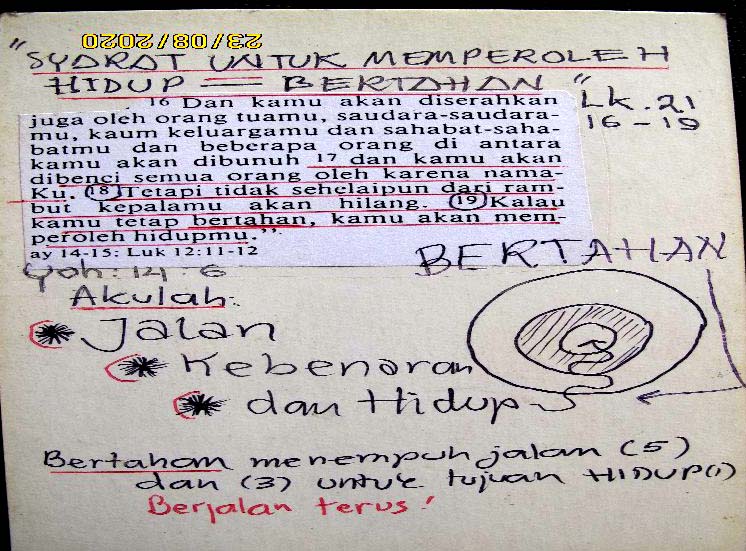 23/08/2020
"SYARAT UNTUK MEMPEROLEH
HIDUP = BERTAHAN"
Lk. 21
16-19
16 Dan kamu akan diserahkan
juga oleh orang tuamu, saudara-saudara-
mu, kaum keluargamu dan sahabat-saha-
batmu dan beberapa orang di antara
kamu akan dibunuh 17 dan kamu akan
dibenci semua orang oleh karena nama-
Ku. 18 Tetapi tidak sehelaipun dari ram-
but kepalamu akan hilang. 19 Kalau
kamu tetap bertahan, kamu akan mem-
peroleh hidupmu."
ay 14-15: Luk 12:11-12
BERTAHAN
Yoh: 14: 6
Akulah:
Jalan
Kebenaran
dan Hidup
Bertahan menempuh jalan (5)
dan (3) untuk tujuan HIDUP(1)
Berjalan terus!